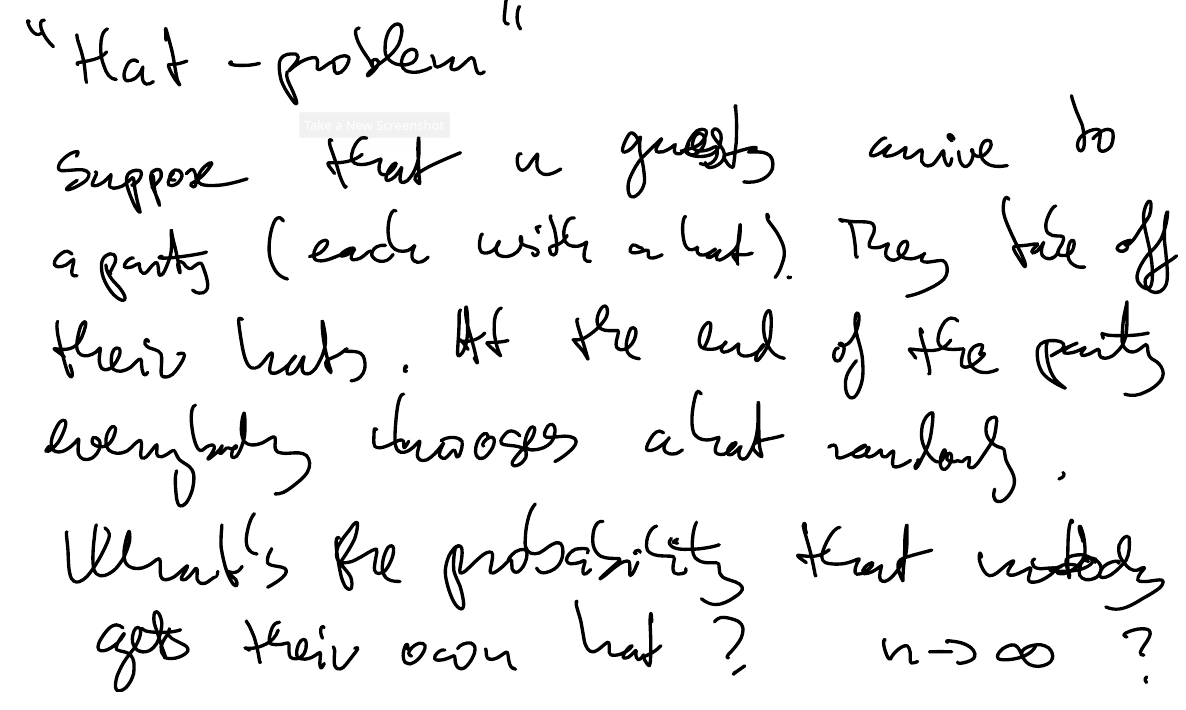 "Hat - problem"
Take a New Screenshot
Suppose that n guests arrive to
a party (each with a hat). They take off
their hats. At the end of the party
everybody chooses a hat randomly.
What's the probability that nobody
gets their own hat? n → ∞ ?